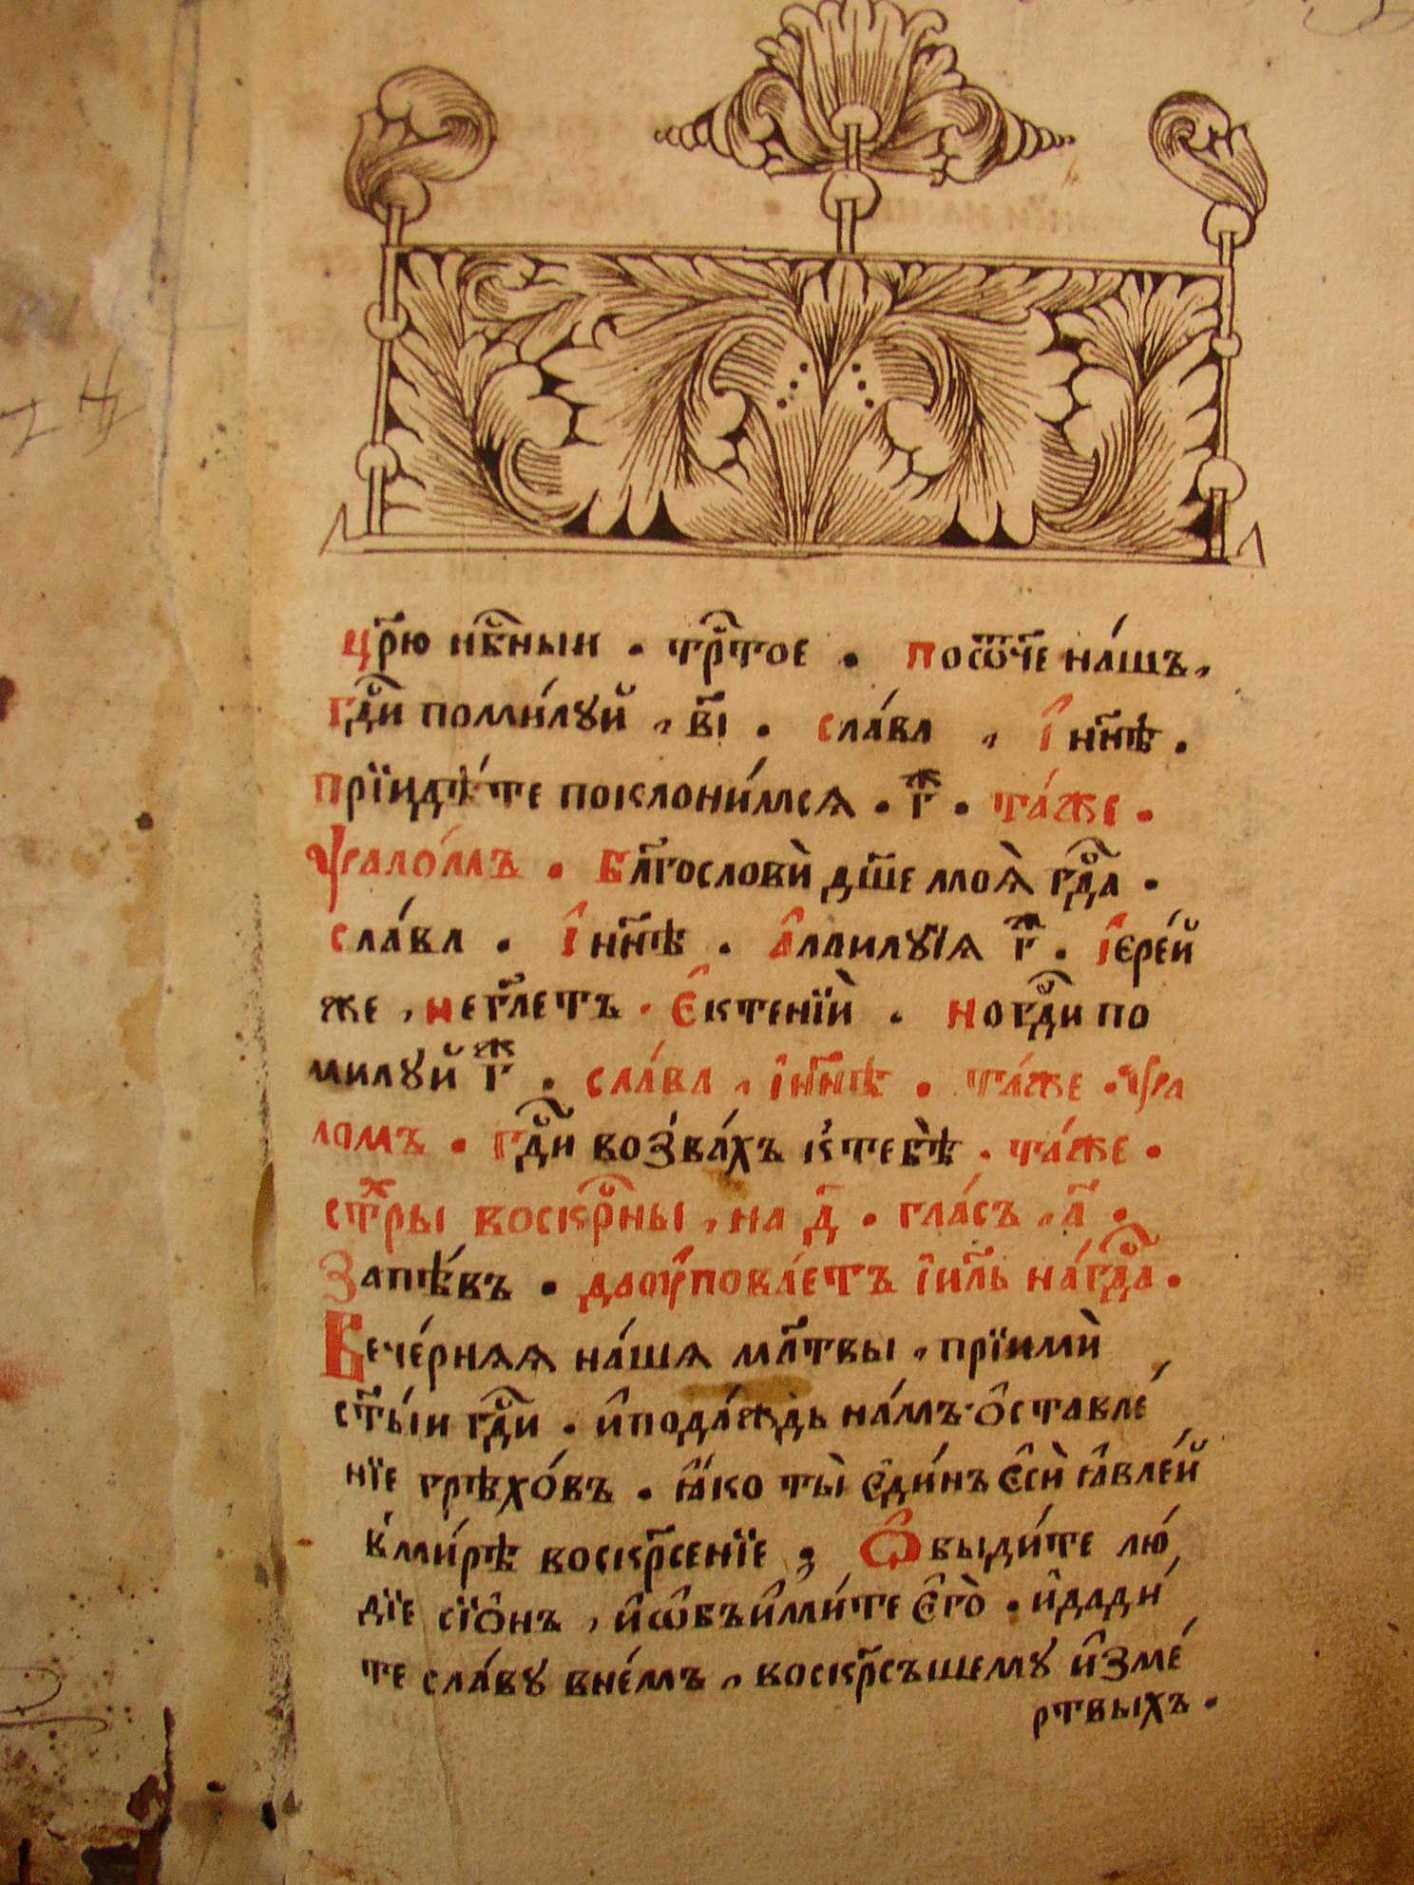 цр҃ю нб҇ныи . тр҇тое . поѿч҃е на́шъ,
гд҇и поми́лꙋй , в҃і . сла́ва , І҆ нн҃ѣ .
прїидѣ́те поклони́мсѧ . г҃ж . та́же .
ѱало́мъ . Бл҃гослови̇̀ дш҃е моѧ̀ гд҇а .
сла́ва . І҆ нн҃ѣ . А҆ллилꙋ́їѧ г҃ж . І҆ере́й
же , не гл҃етъ . Є҆ктенїи̇̀ . но гд҇и по
милꙋй г҃ж . сла́ва , і҆ нн҃ѣ . та́же . ѱа
ломъ . гд҇и возва́хъ к̾ тебѣ̀ . та́же .
ст҃ры воскр҇ны , на д҃ . гла́съ , а҃ .
Запѣ́въ . да оу҆пова́етъ і҆и҃ль на́ гд҇а .
Вече́рнѧѧ на́шѧ мл҃твы , прїими̇̀
ст҃ы́и гд҇и . и҆ пода́ждь на́мъ ѻ҆ставле́
нїе грѣхо́въ . ꙗ҆́ко ты̀ є҆ди́нъ є҆си̇̀ ꙗ҆вле́й
в̾ ми́рѣ воскр҃сенїе ; Ѡ҆быди́те лю́
дїе сїѻ́нъ , и҆ ѡ҆бъи҆ми́те є҆го̀ . и҆ дади́
те сла́вꙋ в не́мъ , воскр҃съшемꙋ и҆зме́
ртвыхъ .